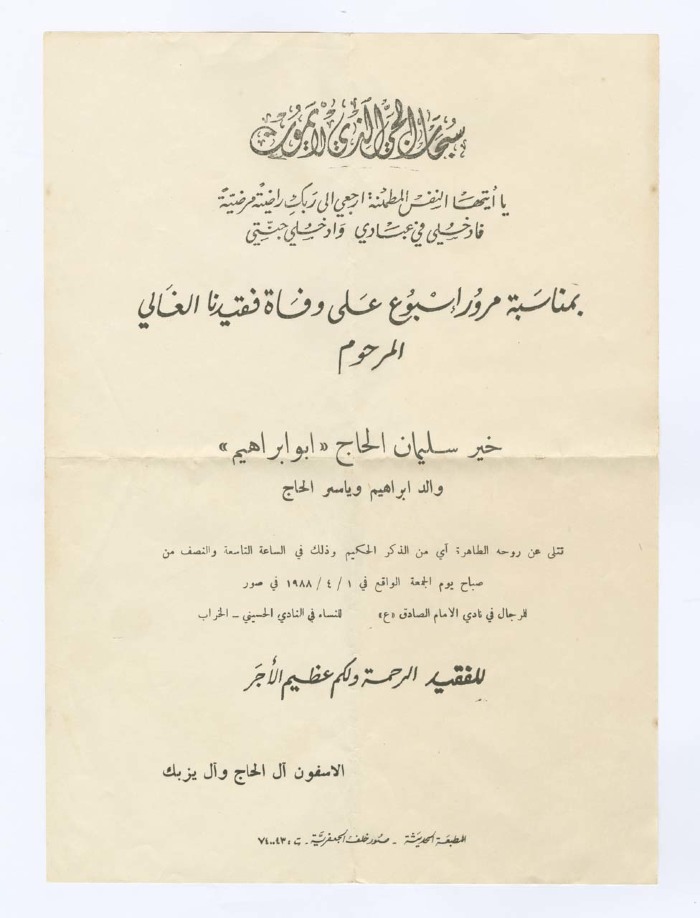 سبحان الحي الذي لا يموت
يا أيتها النفس المطمئنة ارجعي الى ربك راضية مرضية
فادخلي في عبادي وادخلي جنتي
بمناسبة مرور إسبوع على وفاة فقيدنا الغالي
المرحوم
خير سليمان الحاج «ابو ابراهيم»
والد ابراهيم وياسر الحاج
تتلى عن روحه الطاهرة آي من الذكر الحكيم وذلك في الساعة التاسعة والنصف من
صباح يوم الجمعة الواقع في ١ / ٤ / ١٩٨٨ في صور
للرجال في نادي الامام الصادق «ع» للنساء في النادي الحسيني – الخراب
للفقيد الرحمة ولكم عظيم الأجر
الاسفون آل الحاج وآل يزبك
المطبعة الحديثة - صور خلف الجعفرية - ت: ٧٤٠٠٤٣